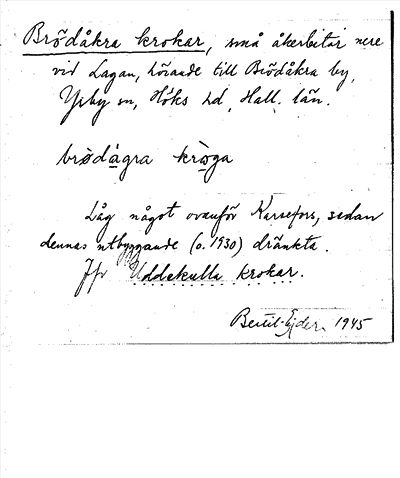 Brödåkra krokar, små åkerbitar nere
vid Lagan, hörande till Brödåkra by,
Ysby sn, Höks hd, Hall. län.
brø̀dågra krò̱ga
Låg något ovanför Karsefors, sedan
dennas utbyggande (o. 1930) dränkta.
Jfr Uddekulla krokar.
Bertil Ejder 1945